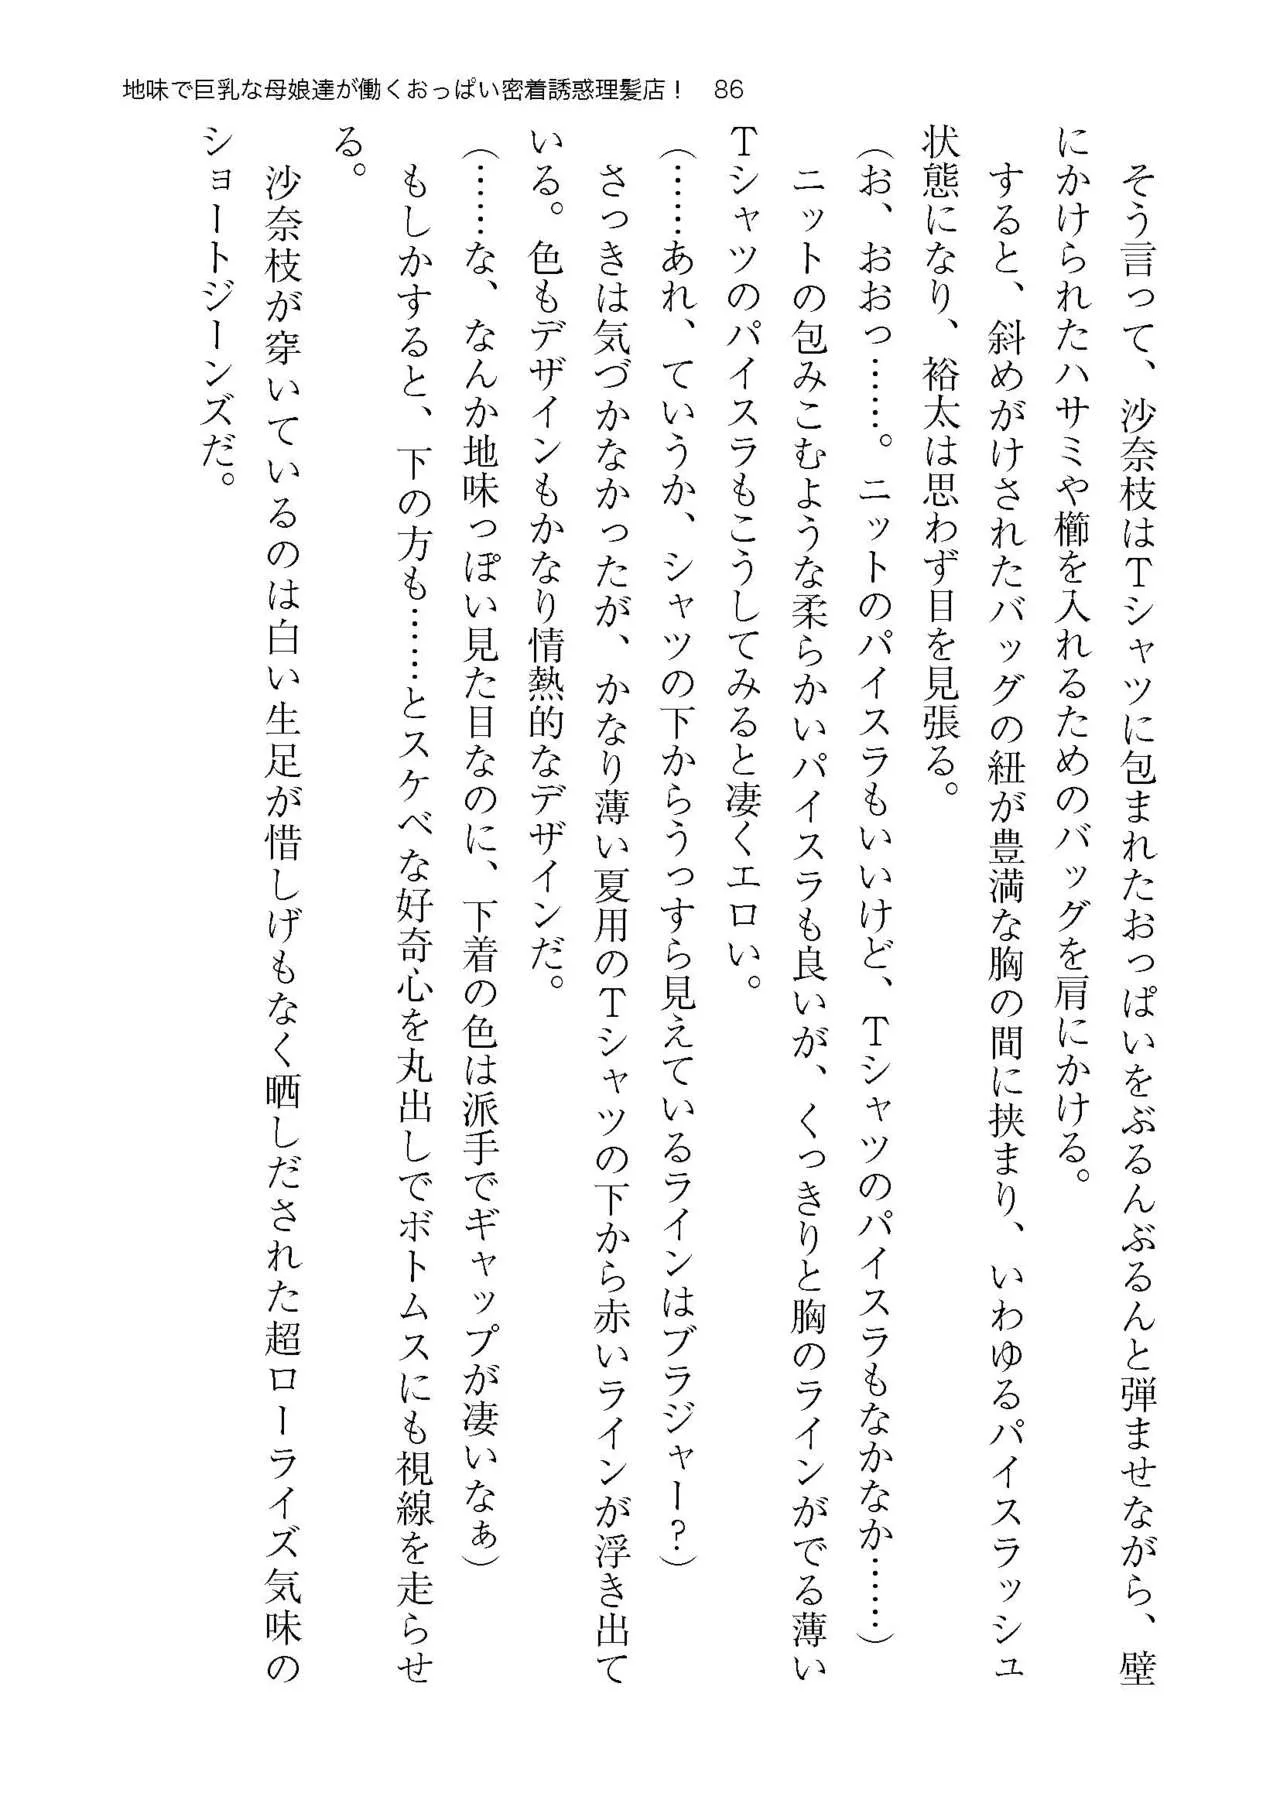 地味で巨乳な母娘達が働くおっぱい密着誘惑理髪店！　86
　そう言って、沙奈枝はTシャツに包まれたおっぱいをぶるんぶるんと弾ませながら、壁
にかけられたハサミや櫛を入れるためのバッグを肩にかける。
　すると、斜めがけされたバッグの紐が豊満な胸の間に挟まり、いわゆるパイスラッシュ
状態になり、裕太は思わず目を見張る。
（お、おおっ……。ニットのパイスラもいいけど、Tシャツのパイスラもなかなか……）
　ニットの包みこむような柔らかいパイスラも良いが、くっきりと胸のラインがでる薄い
Tシャツのパイスラもこうしてみると凄くエロい。
（……あれ、ていうか、シャツの下からうっすら見えているラインはブラジャー？）
　さっきは気づかなかったが、かなり薄い夏用のTシャツの下から赤いラインが浮き出て
いる。色もデザインもかなり情熱的なデザインだ。
（……な、なんか地味っぽい見た目なのに、下着の色は派手でギャップが凄いなぁ）
　もしかすると、下の方も……とスケベな好奇心を丸出しでボトムスにも視線を走らせ
る。
　沙奈枝が穿いているのは白い生足が惜しげもなく晒しだされた超ローライズ気味の
ショートジーンズだ。